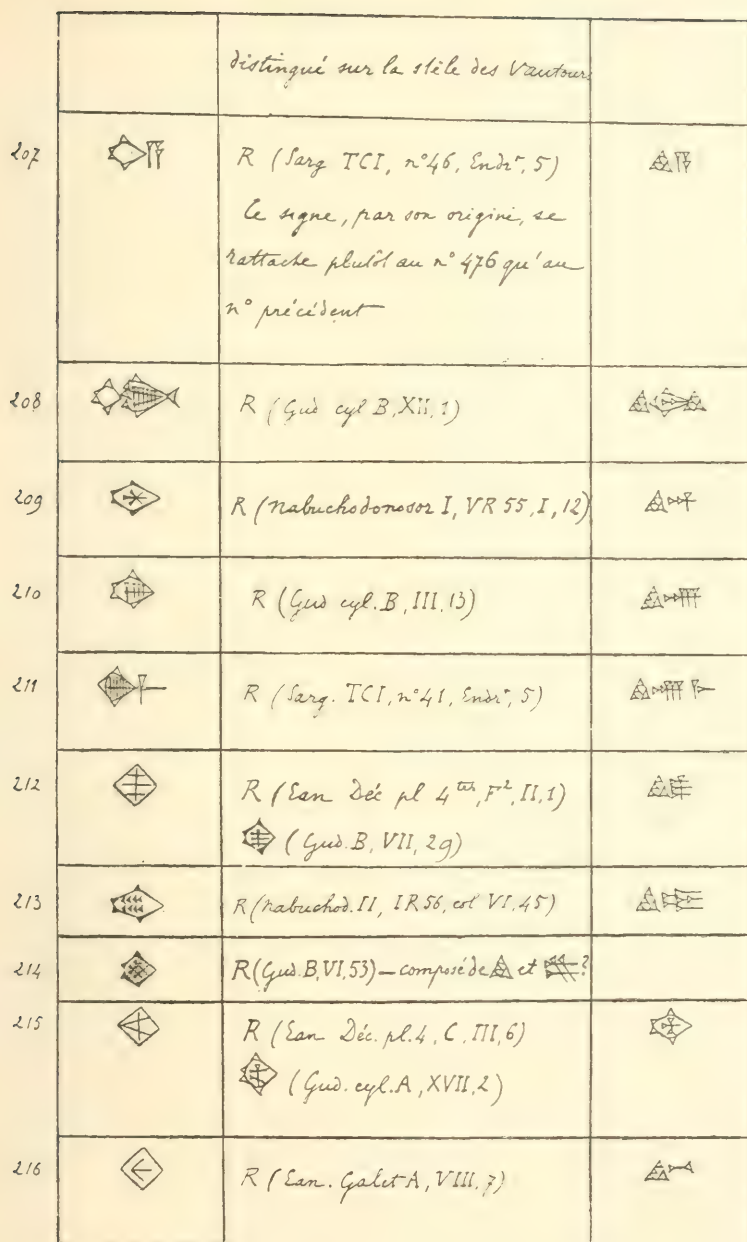 distingué sur la stèle des Vautours
207 R (Sarg TCI, n° 46, Endr^t, 5)
Ce signe, par son origine, se
rattache plutôt au n° 476 qu'au
n° précédent
208 R (Gud cyl B, XII, 1)
209 R (Nabuchodonosor I, VR 55, I, 12)
210 R (Gud cyl. B, III, 13)
211 R (Sarg. TCI, n° 41, Endr^t, 5)
212 R (Ean Déc pl 4^ter, F^2, II, 1)
(Gud. B, VII, 29)
213 R (Nabuchod. II, IR 56, col VI, 45)
214 R (Gud. B, VI, 53) — composé de et ?
215 R (Ean Déc. pl. 4, C, III, 6)
(Gud. cyl. A, XVII, 2)
216 R (Ean. Galet A, VIII, 7)